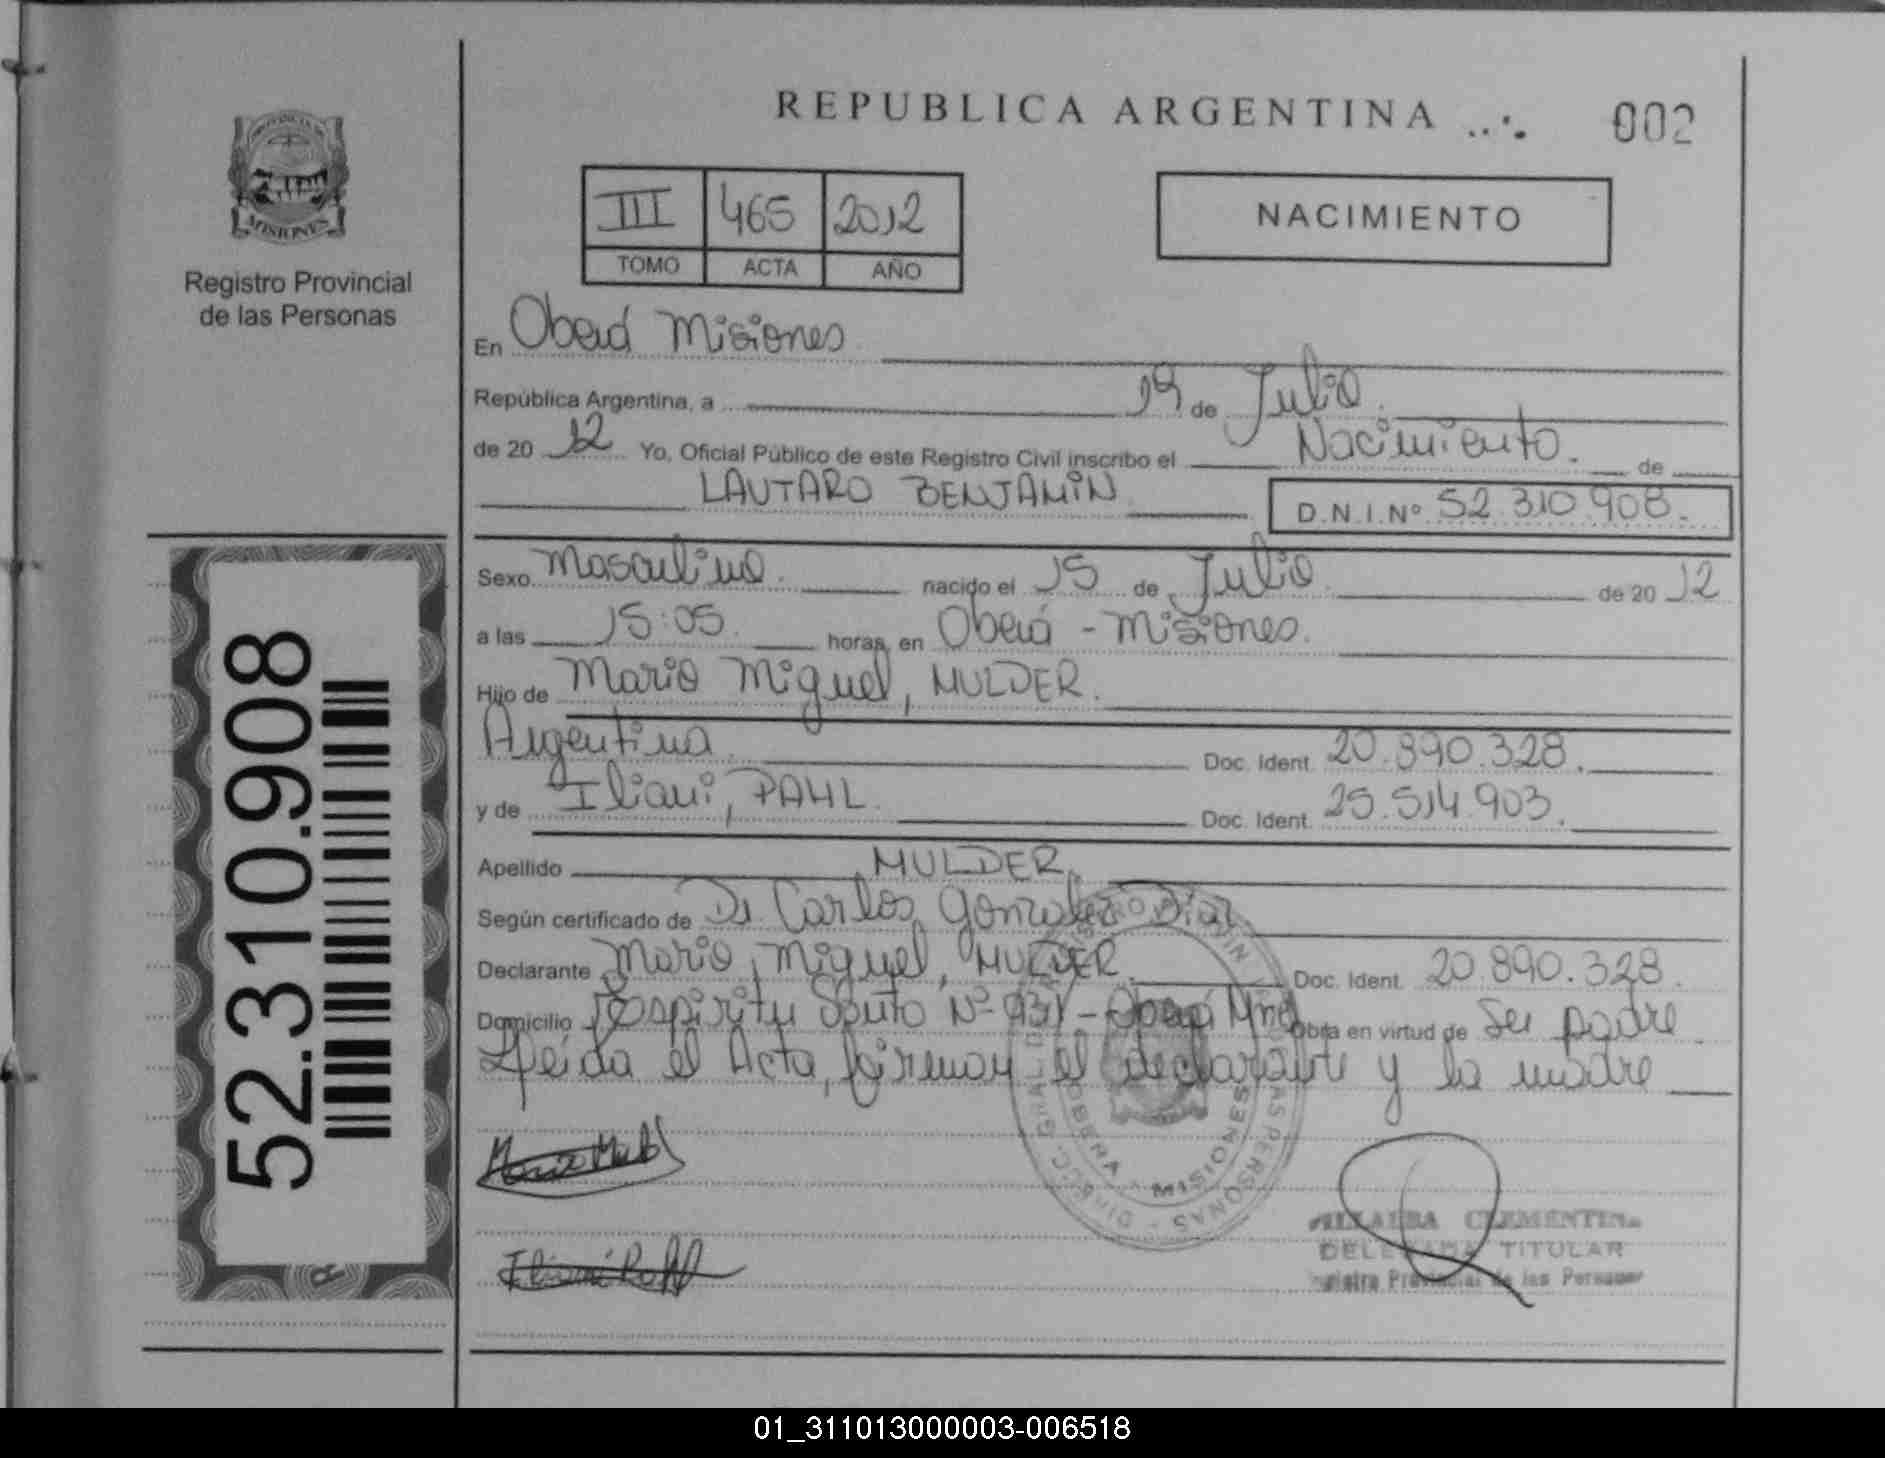 REPUBLICA ARGENTINA
002
MISIONES
Registro Provincial
de las Personas
III 465 2012
TOMO ACTA AÑO
NACIMIENTO
En Oberá Misiones
República Argentina, a 19 de Julio.
de 20 12 Yo, Oficial Público de este Registro Civil inscribo el Nacimiento. de
LAUTARO BENJAMIN D.N.I.Nº 52.310.908.
Sexo Masculino. nacido el 15 de Julio. de 20 12
a las 15:05. horas, en Oberá - Misiones.
Hijo de Mario Miguel, MULDER.
Argentina. Doc. Ident. 20.890.328.
y de Iliani, PAHL. Doc. Ident. 25.514.903.
Apellido MULDER.
Según certificado de Dr. Carlos Gonzalez Diaz
Declarante Mario Miguel, MULDER. Doc. Ident. 20.890.328.
Domicilio Espiritu Santo Nº - Oberá Mnes Obra en virtud de Ser padre
Leída el Acta, firman el declarante y la madre
OBERA - MISIONES
VILLALBA CLEMENTINA
DELEGADA TITULAR
Registro Provincial de las Personas
52.310.908
01_311013000003-006518